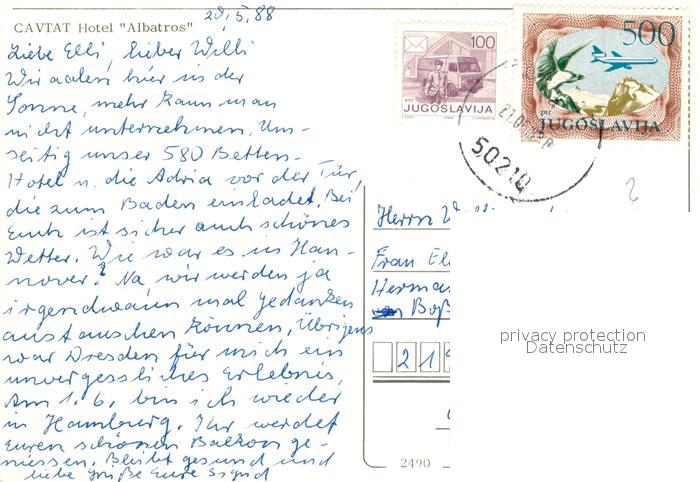 20.5.88
CAVTAT Hotel "Albatros"
Liebe Elli, lieber Willi
Wir aalen hier in der
Sonne, mehr kann man
nicht unternehmen, Um-
seitig unser 580 Betten-
Hotel u. die Adria vor der Tür,
die zum Baden einladet. Bei
Euch ist sicher auch schönes
Wetter. Wie war es in Han-
nover? Na, wir werden ja
irgendwann mal Gedanken
austauschen können, Übrigens
war Dresden für mich ein
unvergessliches Erlebnis.
Am 1.6. bin ich wieder
in Hamburg. Ihr werdet
Euren schönen Balkon ge-
niessen. Bleibt gesund und
liebe Grüße Eure Sigrid
100
PTT
JUGOSLAVIJA
500
PTT
JUGOSLAVIJA
50210
Herrn
Frau
219
2490
privacy protection
Datenschutz